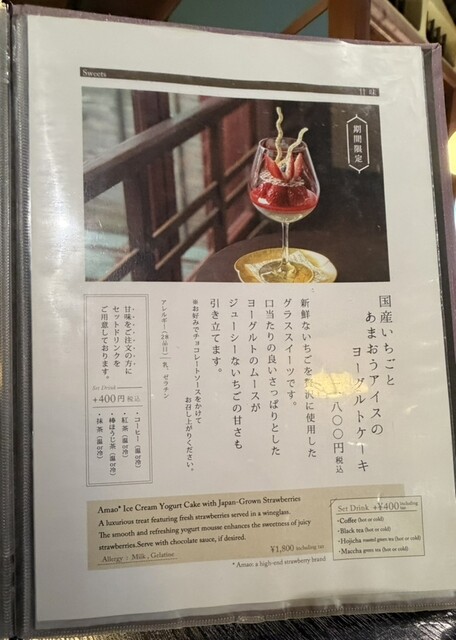 Sweets
甘味
期間限定
国産いちごと
あまおうアイスの
ヨーグルトケーキ
八〇〇円税込
新鮮ないちごを贅沢に使用した
グラススイーツです。
口当たりの良いさっぱりとした
ヨーグルトのムースが
ジューシーないちごの甘さも
引き立てます。
※お好みでチョコレートソースをかけて
お召し上がりください。
アレルギー(28品目) 乳、ゼラチン
甘味をご注文の方に
セットドリンクを
ご用意しております。
Set Drink
+400円税込
・コーヒー(温or冷)
・紅茶(温or冷)
・棒ほうじ茶(温or冷)
・抹茶(温or冷)
Amao* Ice Cream Yogurt Cake with Japan-Grown Strawberries
A luxurious treat featuring fresh strawberries served in a wineglass.
The smooth and refreshing yogurt mousse enhances the sweetness of juicy
strawberries.Serve with chocolate sauce, if desired.
Allergy : Milk , Gelatine
¥1,800 including tax
* Amao: a high-end strawberry brand
Set Drink +¥400 including tax
・Coffee (hot or cold)
・Black tea (hot or cold)
・Hojicha roasted green tea (hot or cold)
・Maccha green tea (hot or cold)